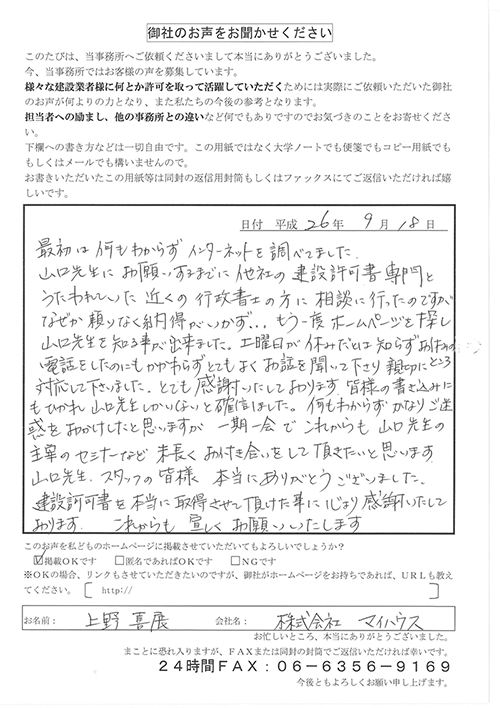 御社のお声をお聞かせください
このたびは、当事務所へご依頼くださいまして本当にありがとうございました。
今、当事務所ではお客様の声を募集しています。
様々な建設業者様に何とか許可を取って活躍していただくためには実際にご依頼いただいた御社
のお声が何よりの力となり、また私たちの今後の参考となります。
担当者への励まし、他の事務所との違いなど何でもありですのでお気づきのことをお寄せくださ
い。
下欄への書き方などは一切自由です。この用紙ではなく大学ノートでも便箋でもコピー用紙でも
もしくはメールでも構いませんので。
お書きいただいたこの用紙等は同封の返信用封筒もしくはファックスにてご返信いただければ嬉
しいです。
日付 平成 26年 9月 18日
最初は何もわからず インターネットを調べてました。
山口先生に お願いするまでに 他社の 建設許可書専門と
うたわれていた 近くの 行政書士の方に 相談に行ったのですが
なぜか 頼りなく納得がいかず... もう一度 ホームページを探し
山口先生を知る事が出来ました。土曜日が 休みだとは知らず お休みの
電話をしたのにもかかわらず とてもよく お話を聞いて下さり 親切に
対応して下さいました。とても 感謝いたしております。皆様の書き込みに
もひかれ 山口先生しかいないと確信しました。何もわからず かなりご迷
惑をおかけしたと思いますが 一期一会で これからも 山口先生の
主宰のセミナーなど 末長く お付き合いをして頂きたいと思います
山口先生. スタッフの皆様 本当にありがとうございました。
建設許可書を本当に取得させて頂けた事に 心より 感謝いたして
おります. これからも 宜しく お願いいたします
このお声を私どものホームページに掲載させていただいてもよろしいでしょうか？
☑掲載OKです □匿名であればOKです □NGです
※OKの場合、リンクもさせていただきたいのですが、御社がホームページをお持ちであれば、URLも教え
てください。 [ http:// ]
お名前： 上野 喜展 会社名： 株式会社 マイハウス
お忙しいところ、本当にありがとうございました。
まことに恐れ入りますが、FAXまたは同封の封筒でご返信いただければ幸いです。
24時間FAX：06-6356-9169
今後ともよろしくお願い申し上げます。